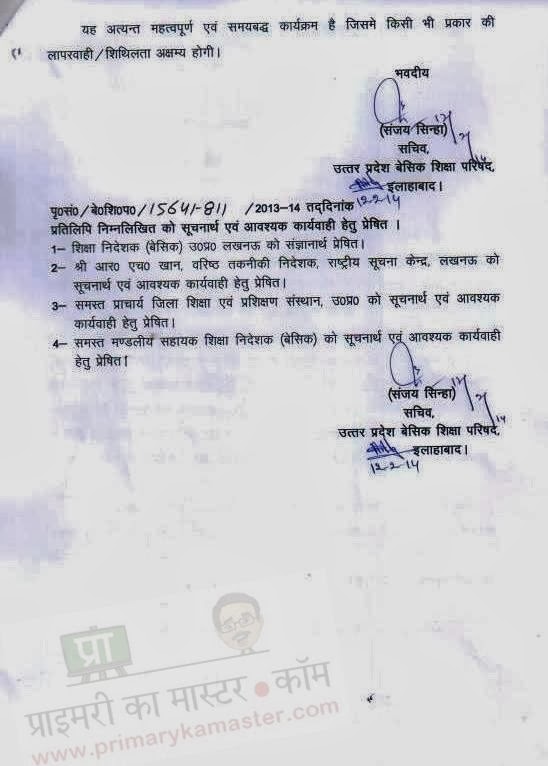 यह अत्यन्त महत्वपूर्ण एवं समयबद्ध कार्यक्रम है जिसमे किसी भी प्रकार की
लापरवाही/शिथिलता अक्षम्य होगी।
भवदीय
(संजय सिन्हा)
सचिव,
उत्तर प्रदेश बेसिक शिक्षा परिषद,
इलाहाबाद।
12-2-14
पृ०सं० / बे०शि०प० / 15641-811 / 2013-14 तद्दिनांक
प्रतिलिपि निम्नलिखित को सूचनार्थ एवं आवश्यक कार्यवाही हेतु प्रेषित।
1- शिक्षा निदेशक (बेसिक) उ०प्र० लखनऊ को संज्ञानार्थ प्रेषित।
2- श्री आर० एच० खान, वरिष्ठ तकनीकी निदेशक, राष्ट्रीय सूचना केन्द्र, लखनऊ को
सूचनार्थ एवं आवश्यक कार्यवाही हेतु प्रेषित।
3- समस्त प्राचार्य जिला शिक्षा एवं प्रशिक्षण संस्थान, उ०प्र० को सूचनार्थ एवं आवश्यक
कार्यवाही हेतु प्रेषित।
4- समस्त मण्डलीय सहायक शिक्षा निदेशक (बेसिक) को सूचनार्थ एवं आवश्यक कार्यवाही
हेतु प्रेषित।
(संजय सिन्हा)
सचिव,
उत्तर प्रदेश बेसिक शिक्षा परिषद,
इलाहाबाद।
12-2-14
प्रा
प्राइमरी का मास्टर●कॉम
www.primarykamaster.com